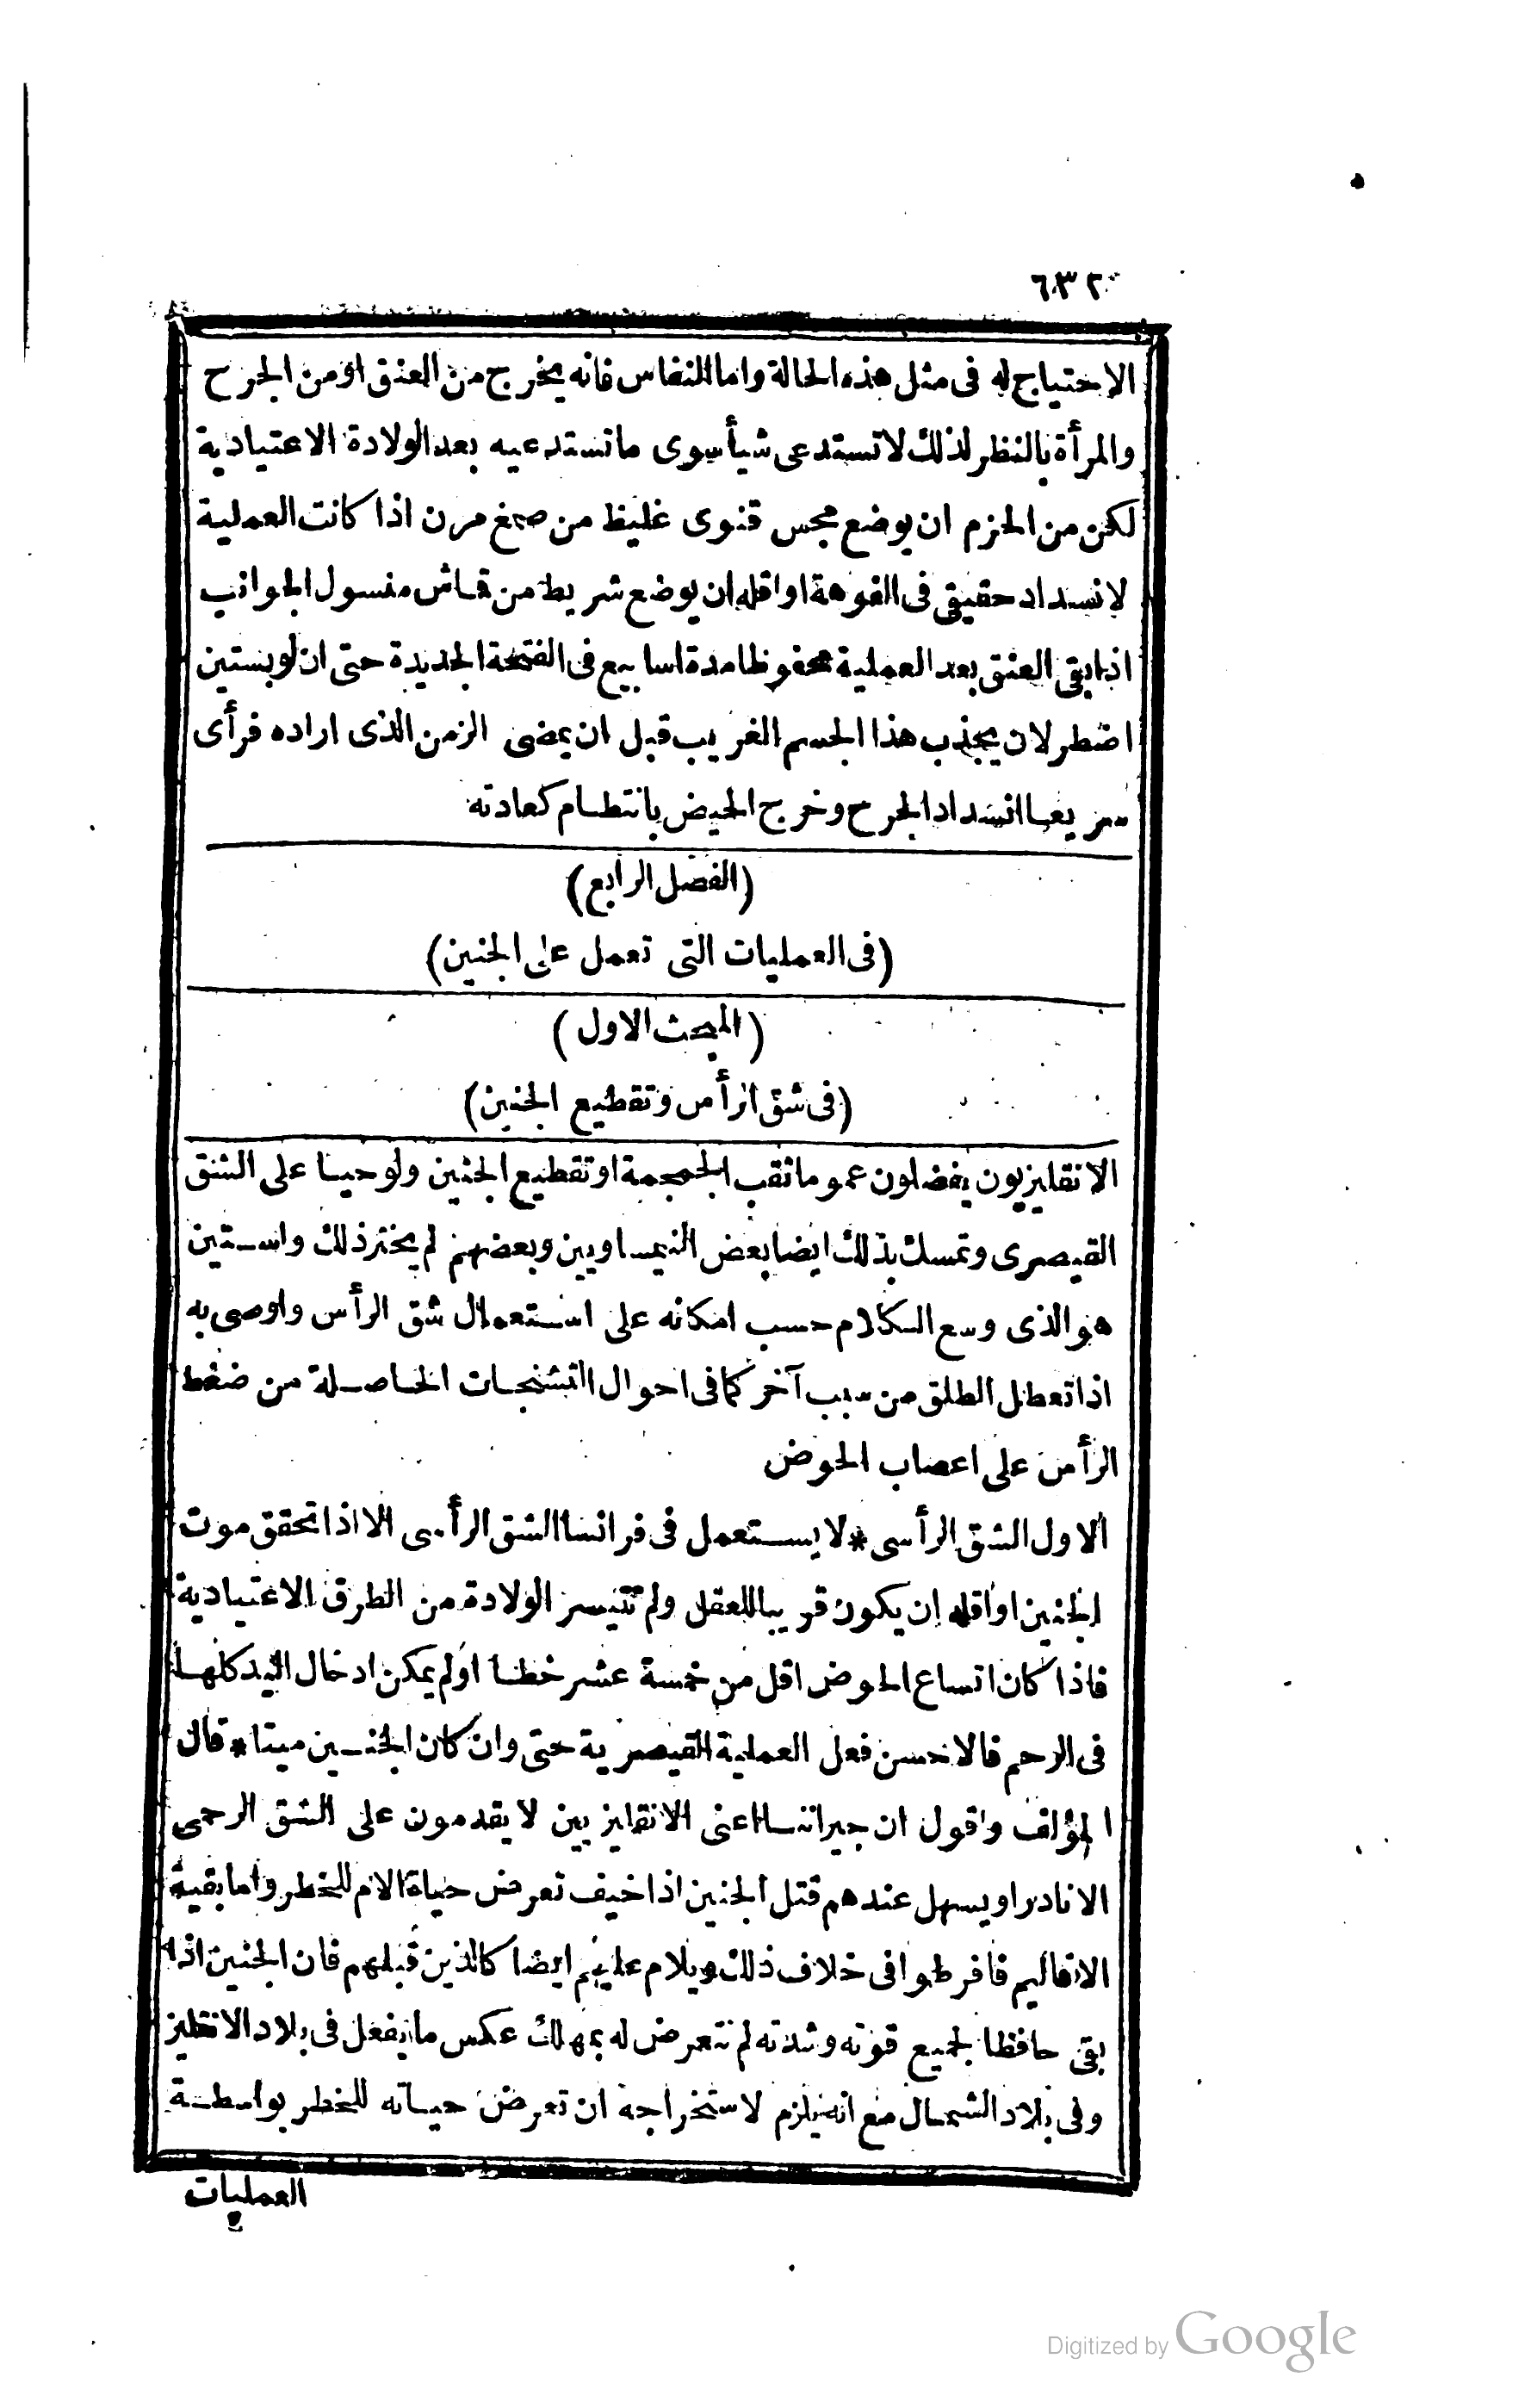 ٦٣٢
الاحتياج له فى مثل هذه الحالة واما النفاس فانه يخرج من العنق او من الجرح
والمرأة بالنظر لذلك لا تستدعى شيأ سوى ما تستدعيه بعد الولادة الاعتيادية
لكن من الحزم ان يوضع مجس قنوى غليظ من صمغ مرن اذا كانت العملية
لانسداد حقيقى فى الفوهة او اقله ان يوضع شريط من قماش منسول الجوانب
اذا بقى العنق بعد العملية محفوظا مدة اسابيع فى الفتحة الجديدة حتى ان لوبستين
اضطر لان يجذب هذا الجسم الغريب قبل ان يمضى الزمن الذى اراده فرأى
سريعا انسداد الجرح وخرج الحيض بانتظام كعادته
(الفصل الرابع)
(فى العمليات التى تعمل على الجنين)
(المبحث الاول)
(فى شق الرأس وتقطيع الجنين)
الانقليزيون يفضلون عموما ثقب الجمجمة او تقطيع الجنين ولو حيا على الشق
القيصرى وتمسك بذلك ايضا بعض النيمساويين وبعضهم لم يختر ذلك واستين
هو الذى وسع الكلام حسب امكانه على استعمال شق الرأس واوصى به
اذا تعطل الطلق من سبب آخر كما فى احوال التشنجات الحاصلة من ضغط
الرأس على اعصاب الحوض
الاول الشق الرأسى * لا يستعمل فى فرانسا الشق الرأسى الا اذا تحقق موت
الجنين او اقله ان يكون قريبا للعقل ولم تتيسر الولادة من الطرق الاعتيادية
فاذا كان اتساع الحوض اقل من خمسة عشر خطا او لم يمكن ادخال اليد كلها
فى الرحم فالاحسن فعل العملية القيصرية حتى وان كان الجنين ميتا * قال
المؤلف واقول ان جيراننا اعنى الانقليزيين لا يقدمون على الشق الرحمى
الا نادرا ويسهل عندهم قتل الجنين اذا خيف تعرض حياة الام للخطر واما بقية
الاقاليم فافرطوا فى خلاف ذلك ويلام عليهم ايضا كالذين قبلهم فان الجنين اذا
بقى حافظا لجميع قوته وشدته لم تتعرض له بمهلك عكس ما يفعل فى بلاد الانقليز
وفى بلاد الشمال مع انه يلزم لاستخراجه ان تعرض حياته للخطر بواسطة
العمليات
Digitized by Google